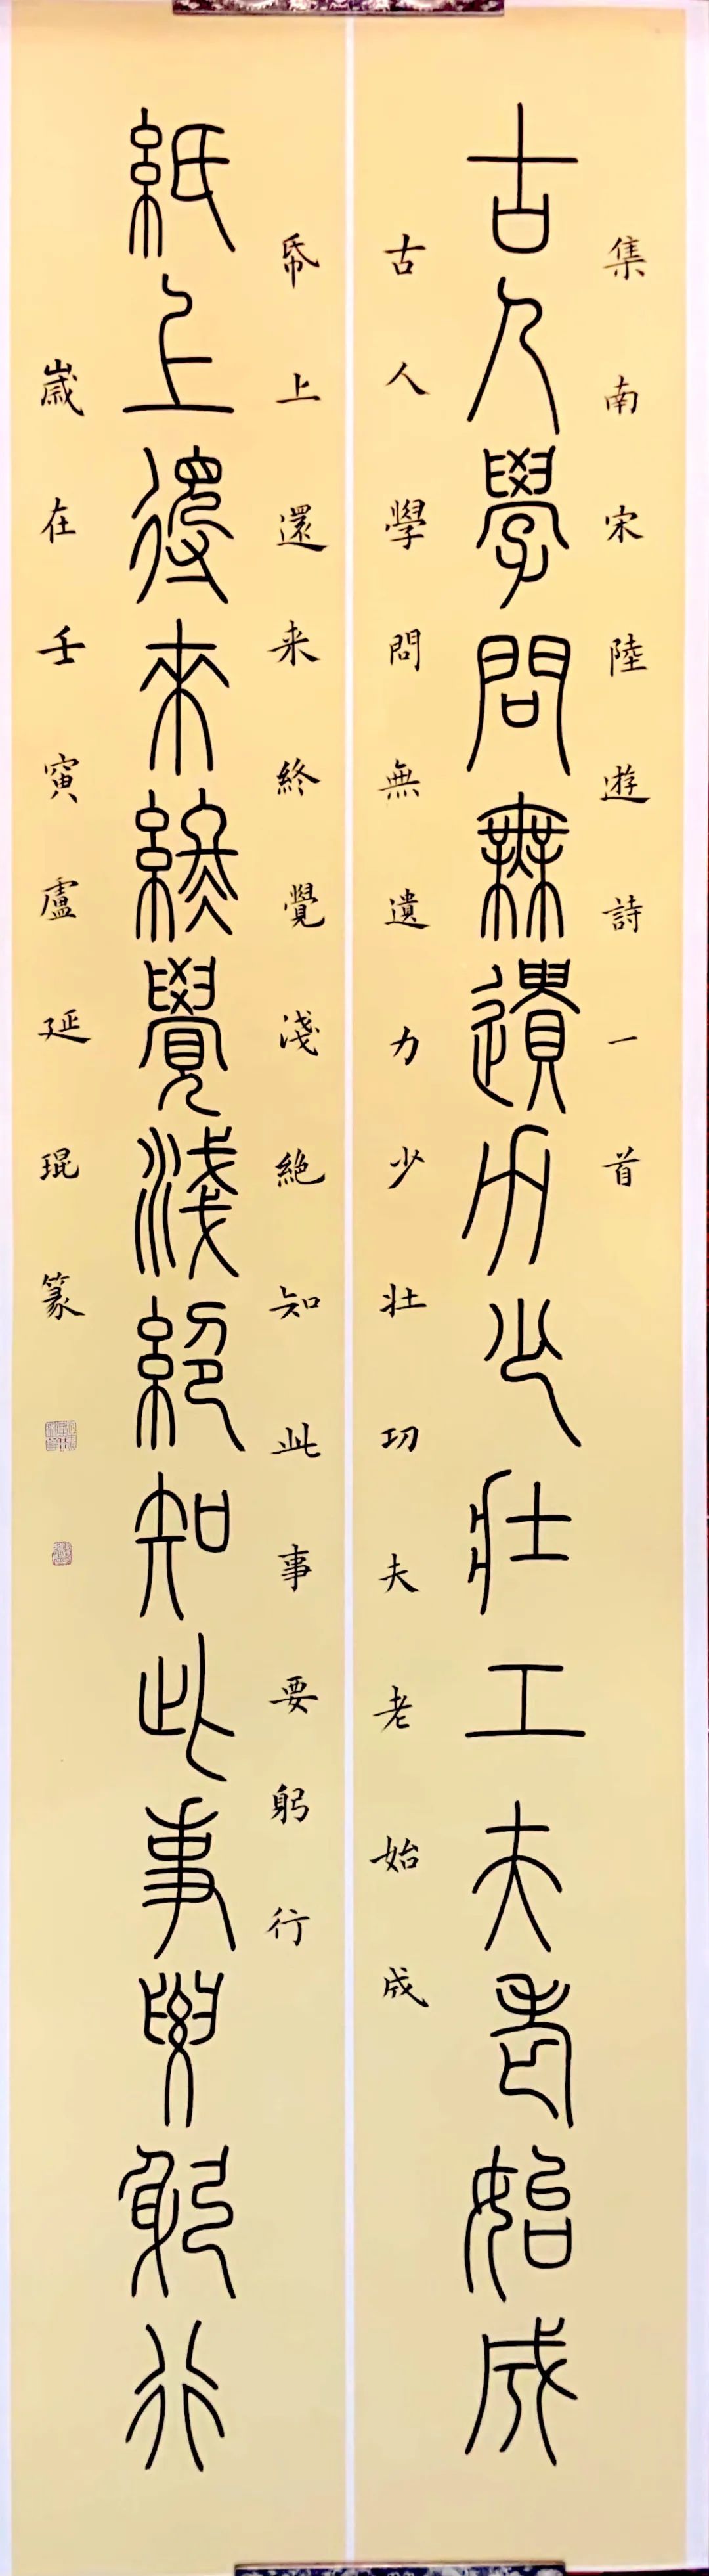 集南宋陸遊詩一首
古人學問無遺力少壯工夫老始成
古人學問無遺力少壯功夫老始成
帋上還来終覺淺絶知此事要躬行
紙上還來終覺淺絕知此事要躬行
歲在壬寅盧延琨篆